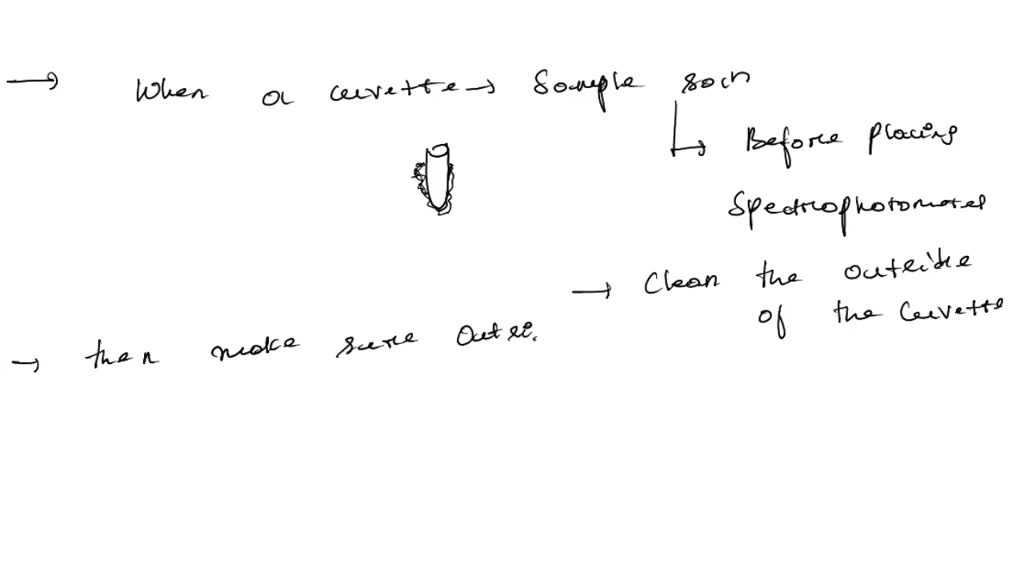 → When a cuvette → Sample soln
↳ Before placing
Spectrophotometer
→ Clean the outside
of the Cuvette
→ then make sure Outsi.